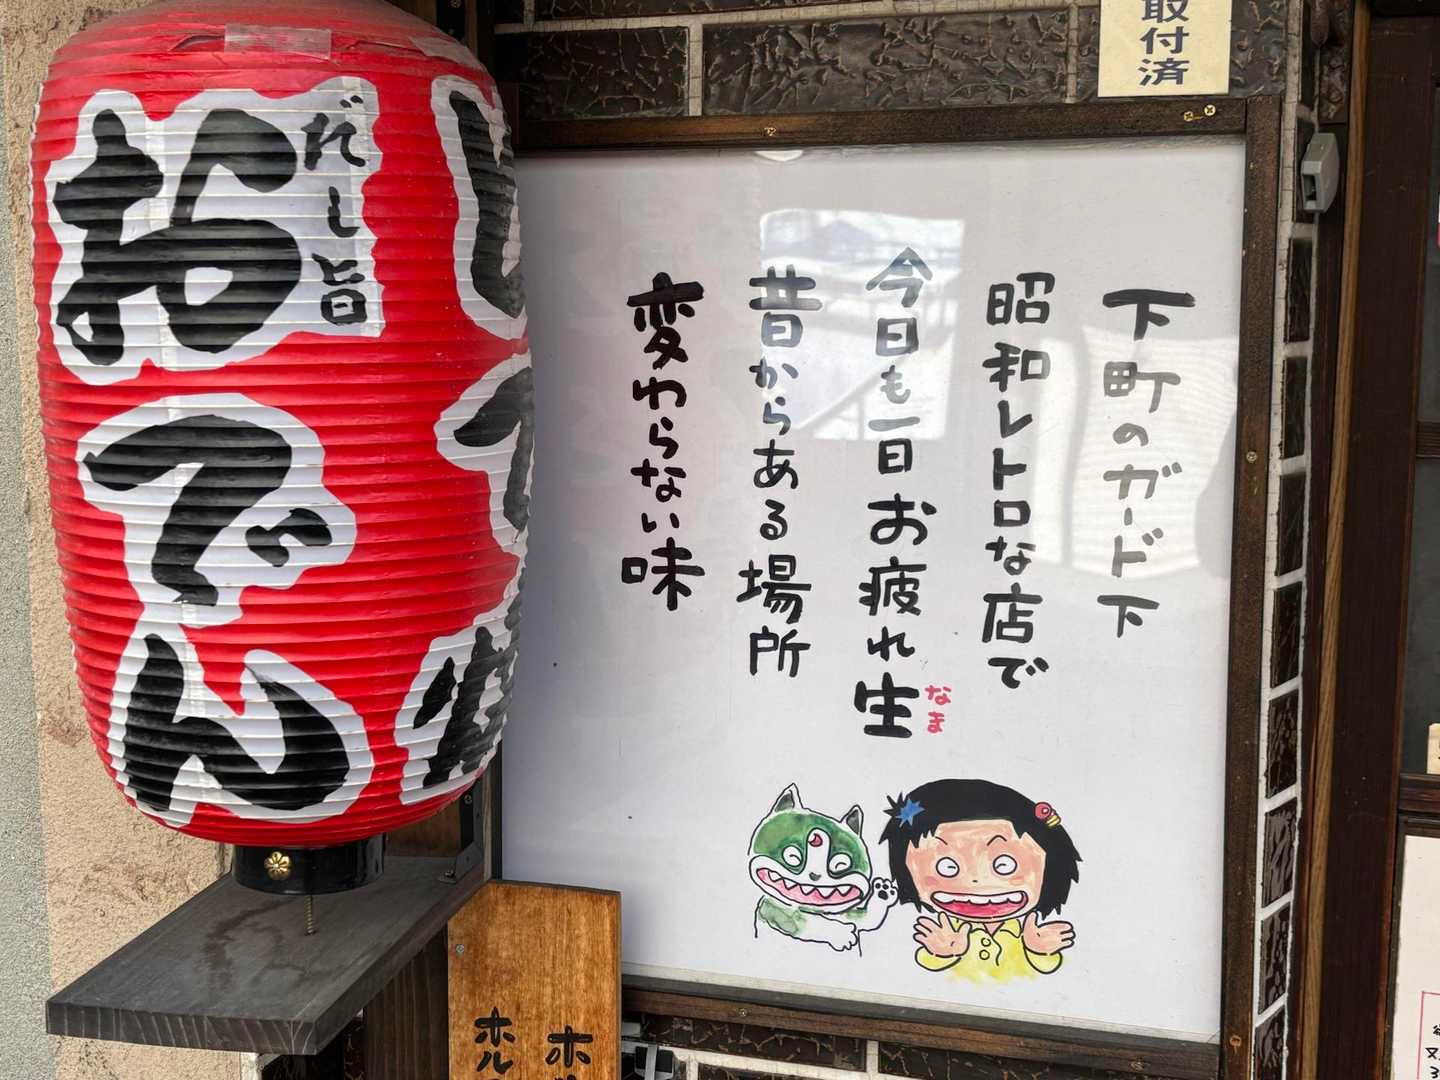 取付済
下町のガード下
昭和レトロな店で
今日も一日お疲れ生
なま
昔からある場所
変わらない味
だし旨
おでん
ホ
ホル